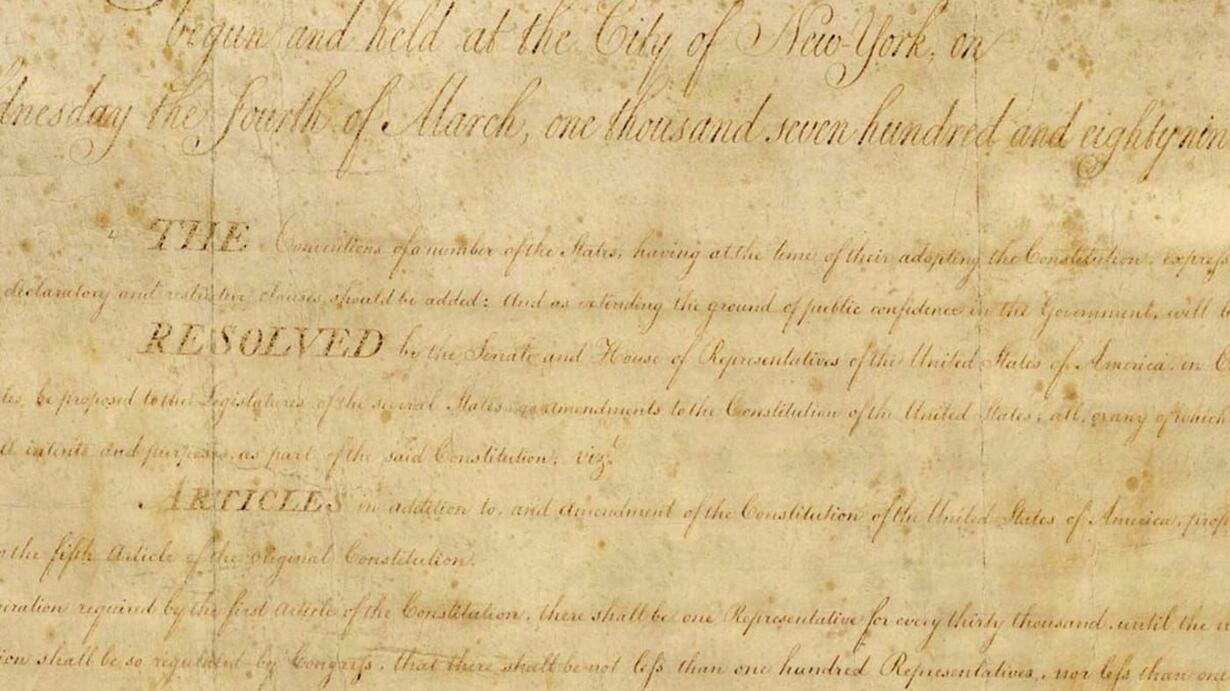 begun and held at the City of New-York, on
dnesday the Fourth of March, one thousand seven hundred and eighty nin
THE Conventions of a number of the States, having at the time of their adopting the Constitution, expres
declaratory and restrictive clauses should be added: And as extending the ground of public confidence in the Government, will b
RESOLVED by the Senate and House of Representatives of the United States of America, in C
tes, be proposed to the Legislatures of the several States, as amendments to the Constitution of the United States, all, or any of which
ll intents and purposes, as part of the said Constitution; viz.t
ARTICLES in addition to, and amendment of the Constitution of the United States of America, prop
o the fifth Article of the original Constitution.
eration required by the first Article of the Constitution, there shall be one Representative for every thirty thousand, until the n
ion shall be so regulated by Congress, that there shall be not less than one hundred Representatives, nor less than one